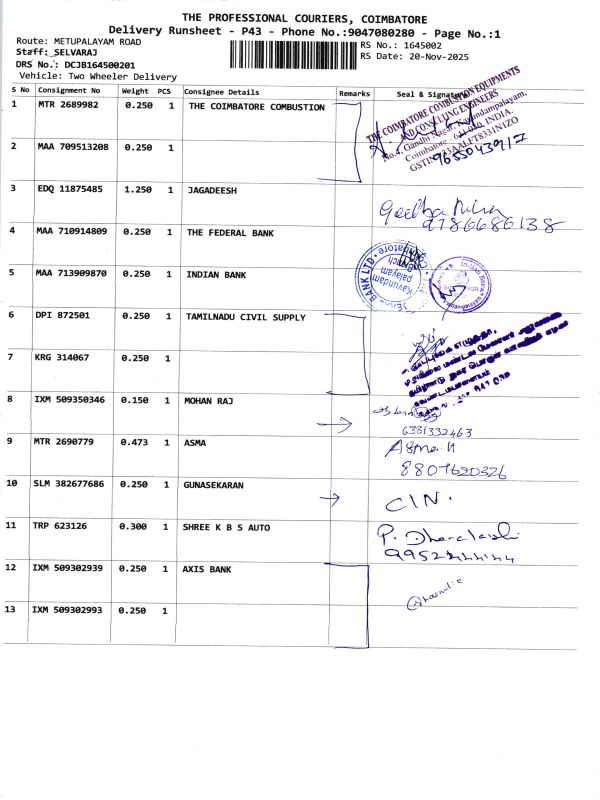 THE PROFESSIONAL COURIERS, COIMBATORE
Delivery Runsheet - P43 - Phone No.:9047080280 - Page No.:1
Route: METUPALAYAM ROAD
RS No.: 1645002
Staff: SELVARAJ
RS Date: 20-Nov-2025
DRS No.: DCJB164500201
Vehicle: Two Wheeler Delivery
S No Consignment No Weight PCS Consignee Details Remarks Seal & Signature
1 MTR 2689982 0.250 1 THE COIMBATORE COMBUSTION
THE COIMBATORE COMBUSTION EQUIPMENTS
AND CONSULTING ENGINEERS
No.4, Gandhi Nagar, Kavundampalayam,
Coimbatore - 641 030, INDIA.
2 MAA 709513208 0.250 1
3 EDQ 11875485 1.250 1 JAGADEESH
Geetha
9786686138
4 MAA 710914809 0.250 1 THE FEDERAL BANK
BANK LTD
Kavundam
palayam
Branch
Coimbatore
5 MAA 713909870 0.250 1 INDIAN BANK
6 DPI 872501 0.250 1 TAMILNADU CIVIL SUPPLY
7 KRG 314067 0.250 1
8 IXM 509350346 0.150 1 MOHAN RAJ
6381332463
9 MTR 2690779 0.473 1 ASMA
Asma H
8807620326
10 SLM 382677686 0.250 1 GUNASEKARAN
CIN.
11 TRP 623126 0.300 1 SHREE K B S AUTO
P.
12 IXM 509302939 0.250 1 AXIS BANK
13 IXM 509302993 0.250 1